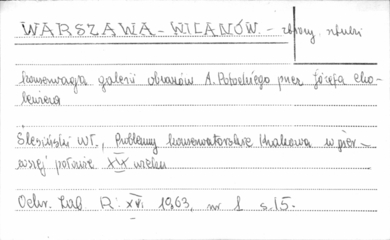 WARSZAWA - WILANÓW. - zbiory sztuki
konserwacja galerii obrazów A. Potockiego przez Józefa Cho-
lewicza
Ślesiński Wł., Problemy konserwatorskie Krakowa w pier-
wszej połowie XIX wieku
Ochr. Zab. R. XVI 1963, nr 1 s. 15.